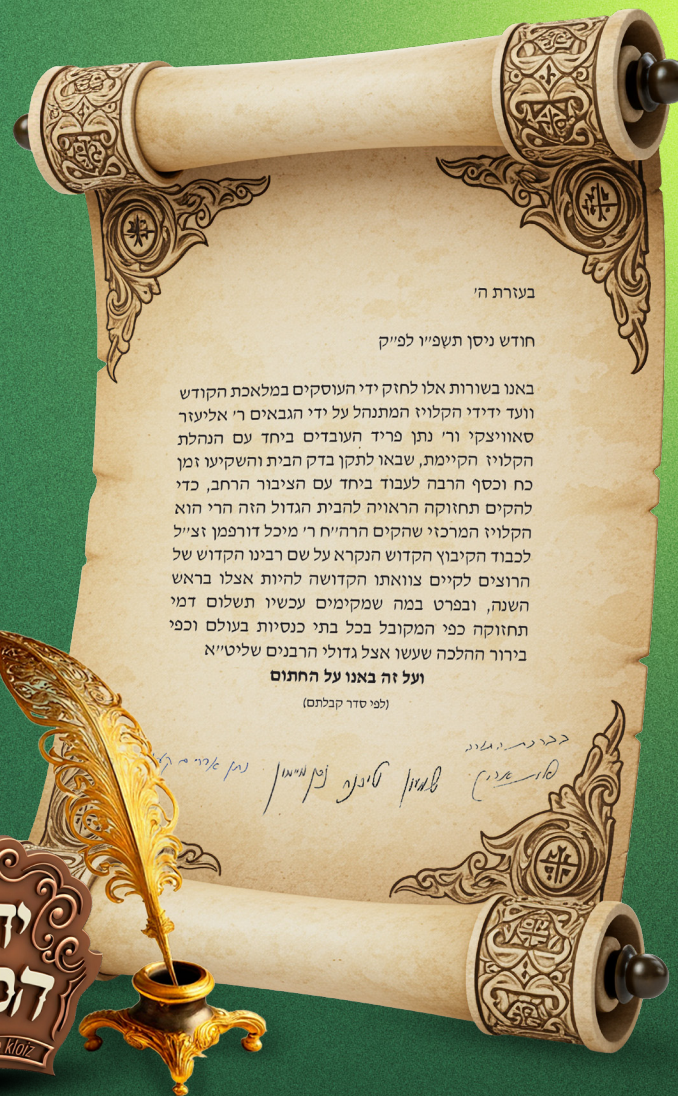 בעזרת ה'
חודש ניסן תשפ״ו לפ״ק
באנו בשורות אלו לחזק ידי העוסקים במלאכת הקודש
וועד ידידי הקלויז המתנהל על ידי הגבאים ר' אליעזר
סאוויצקי ור' נתן פריד העובדים ביחד עם הנהלת
הקלויז הקיימת, שבאו לתקן בדק הבית והשקיעו זמן
כח וכסף הרבה לעבוד ביחד עם הציבור הרחב, כדי
להקים תחזוקה הראויה להבית הגדול הזה הרי הוא
הקלויז המרכזי שהקים הרה״ח ר' מיכל דורפמן זצ״ל
לכבוד הקיבוץ הקדוש הנקרא על שם רבינו הקדוש של
הרוצים לקיים צוואתו הקדושה להיות אצלו בראש
השנה, ובפרט במה שמקימים עכשיו תשלום דמי
תחזוקה כפי המקובל בכל בתי כנסיות בעולם וכפי
בירור ההלכה שעשו אצל גדולי הרבנים שליט״א
ועל זה באנו על החתום
(לפי סדר קבלתם)
שמעון
נתן
kloiz